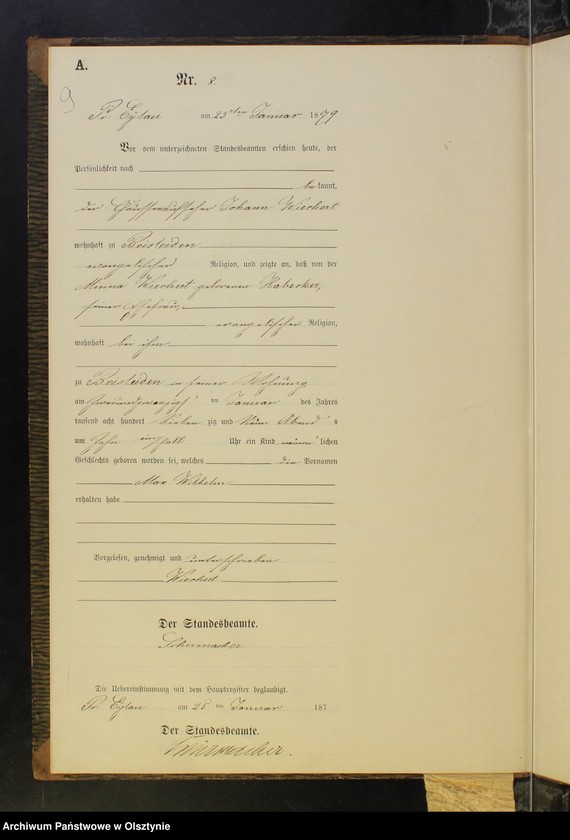 A.
Nr. 8.
9
Pr. Eylau am 25 ten Januar 1879
Vor dem unterzeichneten Standesbeamten erschien heute, der
Persönlichkeit nach
bekannt,
der Chausseeaufseher Johann Wiechert
wohnhaft zu Beisleiden
evangelischer Religion, und zeigte an, daß von der
Minna Wiechert geborenen Habecker,
seiner Ehefrau,
evangelischer Religion,
wohnhaft bei ihm
zu Beisleiden in seiner Wohnung
am zweiundzwanzigsten Januar des Jahres
tausend acht hundert sieben zig und neun Abends
um zehn ein halb Uhr ein Kind männlichen
Geschlechts geboren worden sei, welches die Vornamen
Max Wilhelm
erhalten habe.
Vorgelesen, genehmigt und unterschrieben
Wiechert
Der Standesbeamte.
Schirmacher
Die Uebereinstimmung mit dem Hauptregister beglaubigt.
Pr. Eylau am 25 ten Januar 187
Der Standesbeamte.
Schirmacher.
Archiwum Państwowe w Olsztynie